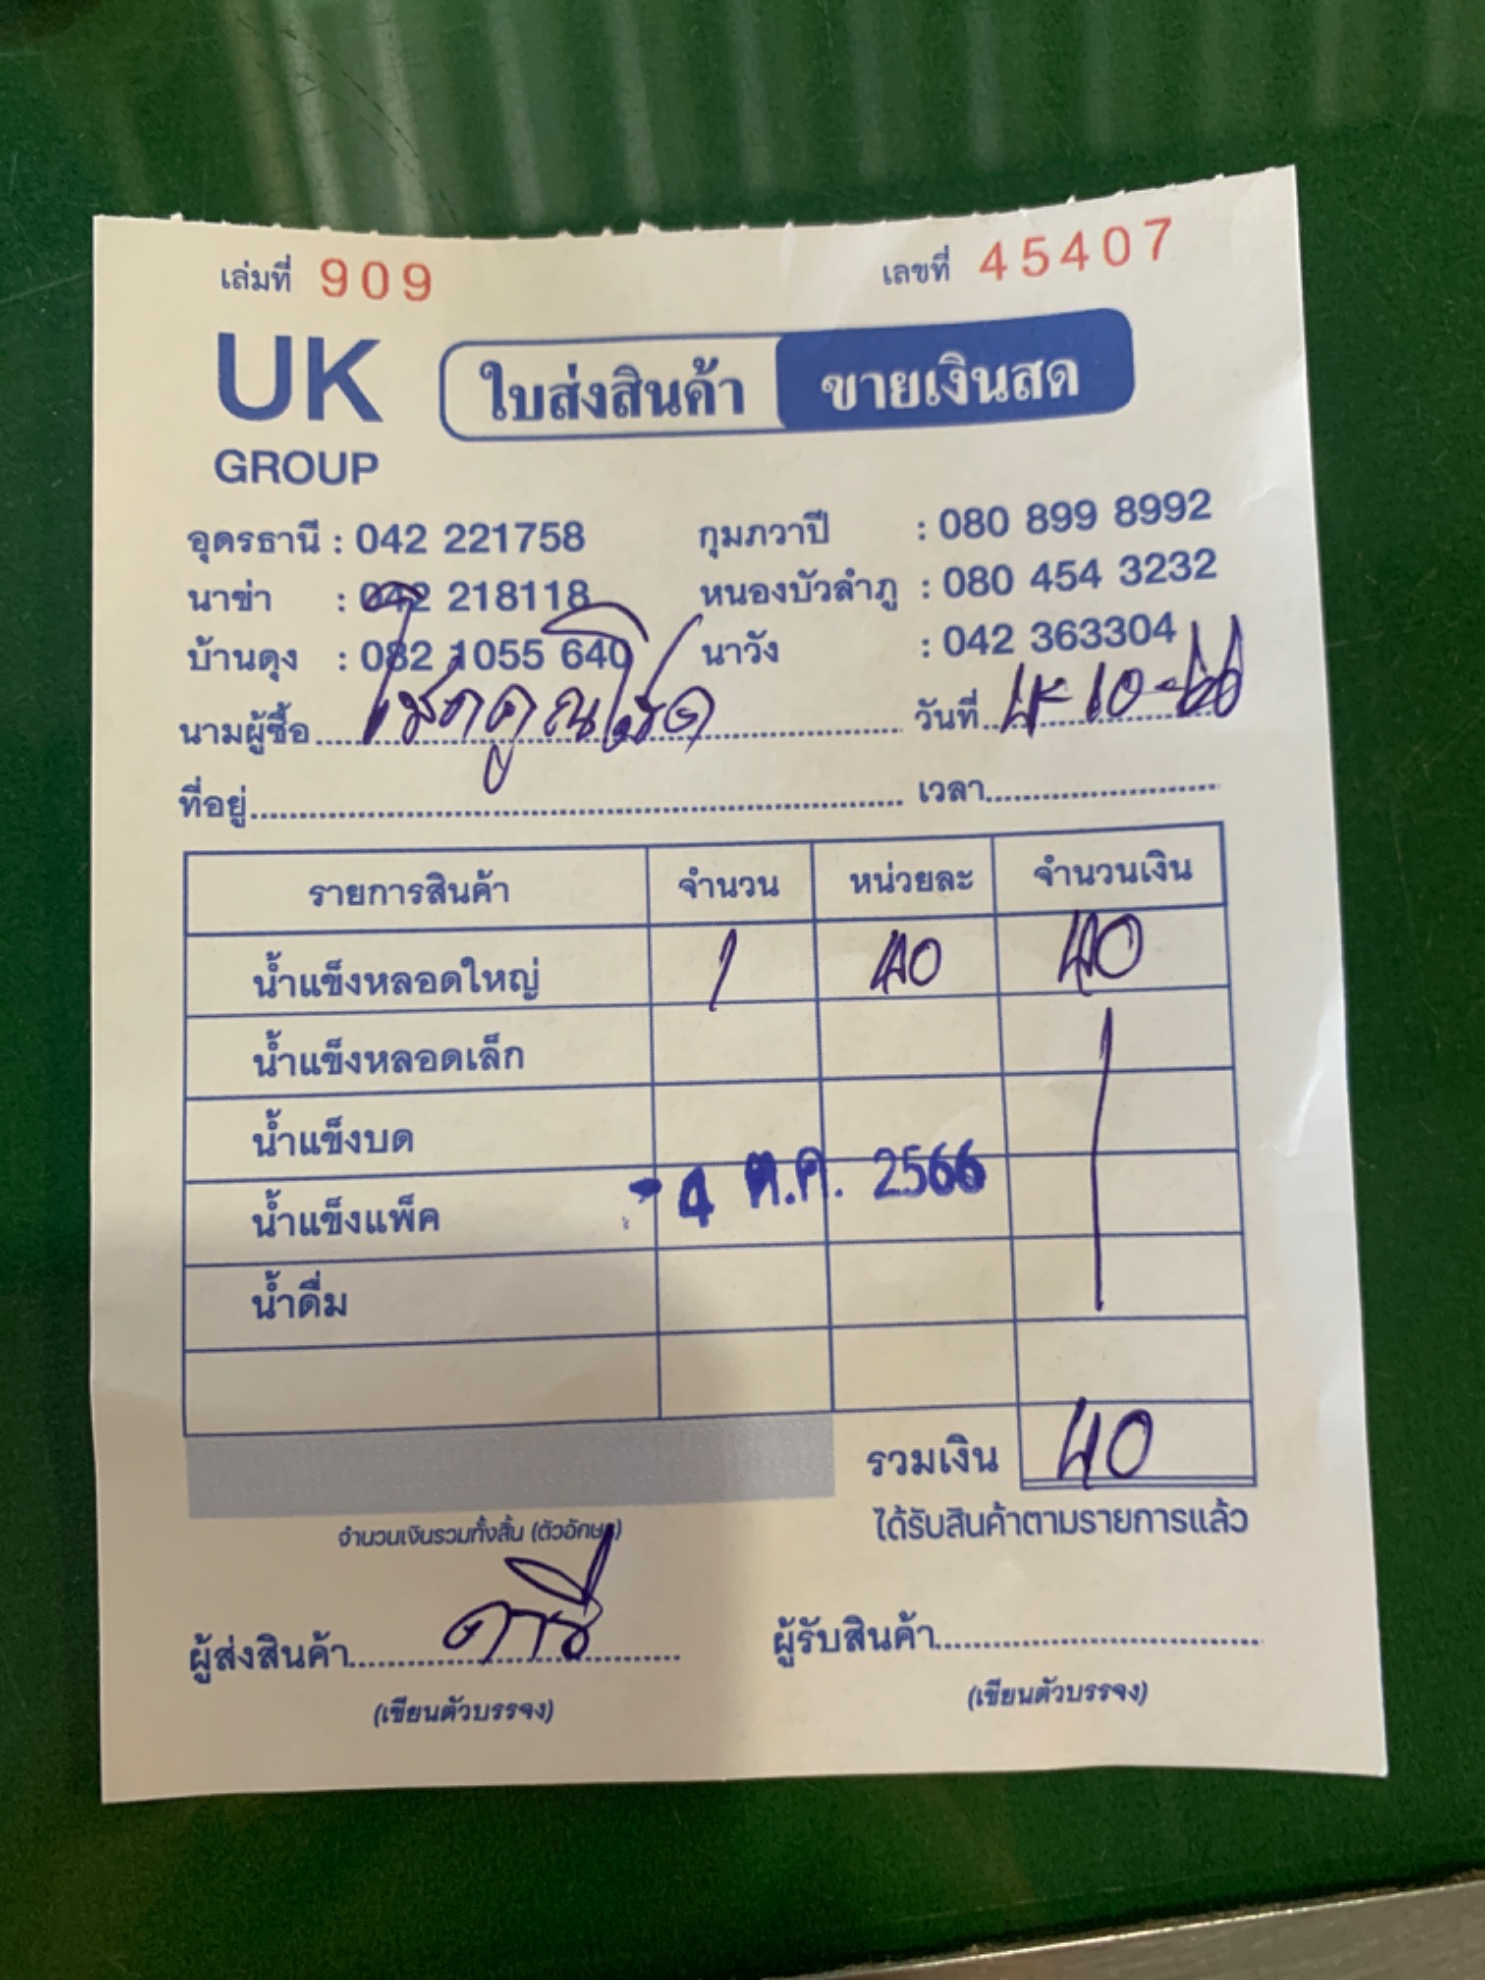 เล่มที่ 909 เลขที่ 45407
UK GROUP
ใบส่งสินค้า ขายเงินสด
อุดรธานี : 042 221758 กุมภวาปี : 080 899 8992
นาข่า : 042 218118 หนองบัวลำภู : 080 454 3232
บ้านดุง : 082 1055 640 นาวัง : 042 363304
นามผู้ซื้อ โชคคูณโชค วันที่ 4-10-66
ที่อยู่ เวลา
รายการสินค้า จำนวน หน่วยละ จำนวนเงิน
น้ำแข็งหลอดใหญ่ 1 40 40
น้ำแข็งหลอดเล็ก
น้ำแข็งบด
- 4 ต.ค. 2566
น้ำแข็งแพ็ค
น้ำดื่ม
รวมเงิน 40
จำนวนเงินรวมทั้งสิ้น (ตัวอักษร) ได้รับสินค้าตามรายการแล้ว
ผู้ส่งสินค้า ผู้รับสินค้า
(เขียนตัวบรรจง) (เขียนตัวบรรจง)